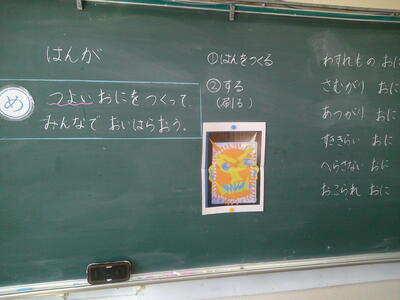 はんが
め
つよいおにをつくって、
みんなでおいはらおう。
①はんをつくる
②する
(刷る)
わすれもの おに
さむがり おに
あつがり おに
すききらい おに
へらさない おに
おこられ おに